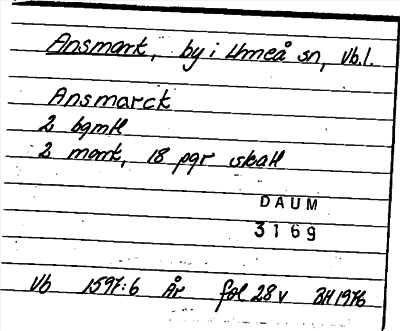 Ansmark, by i Umeå sn, Vb.l.
Ansmarck
2 bgmtl
2 mark, 18 pgr skatt
DAUM
3169
Vb 1597:6 År fol 28 v BH 1976